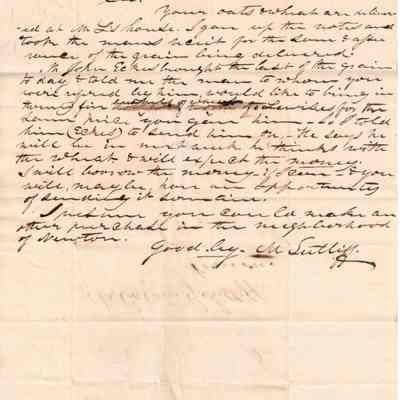 Your oats & wheat are deliver
ed at M Ls house. I gave up the note and
took the mans receit for the same & assu
rance of the grain being delivered.
John Eckis brought the last of the grain
to day & told me the man to whom you
were refered by him, would like to bring in
twenty five for the
same price you gave him. I told
him (Eckis) to send him on, He says he
will be in next week he thinks with
the wheat & will expect the money.
I will borrow the money if I can & you
will, maybe, have an opportunity
of sending it soon.
I presume you could make an
other purchase in the neighborhood
of Newton.
Good by. M Sutliff.